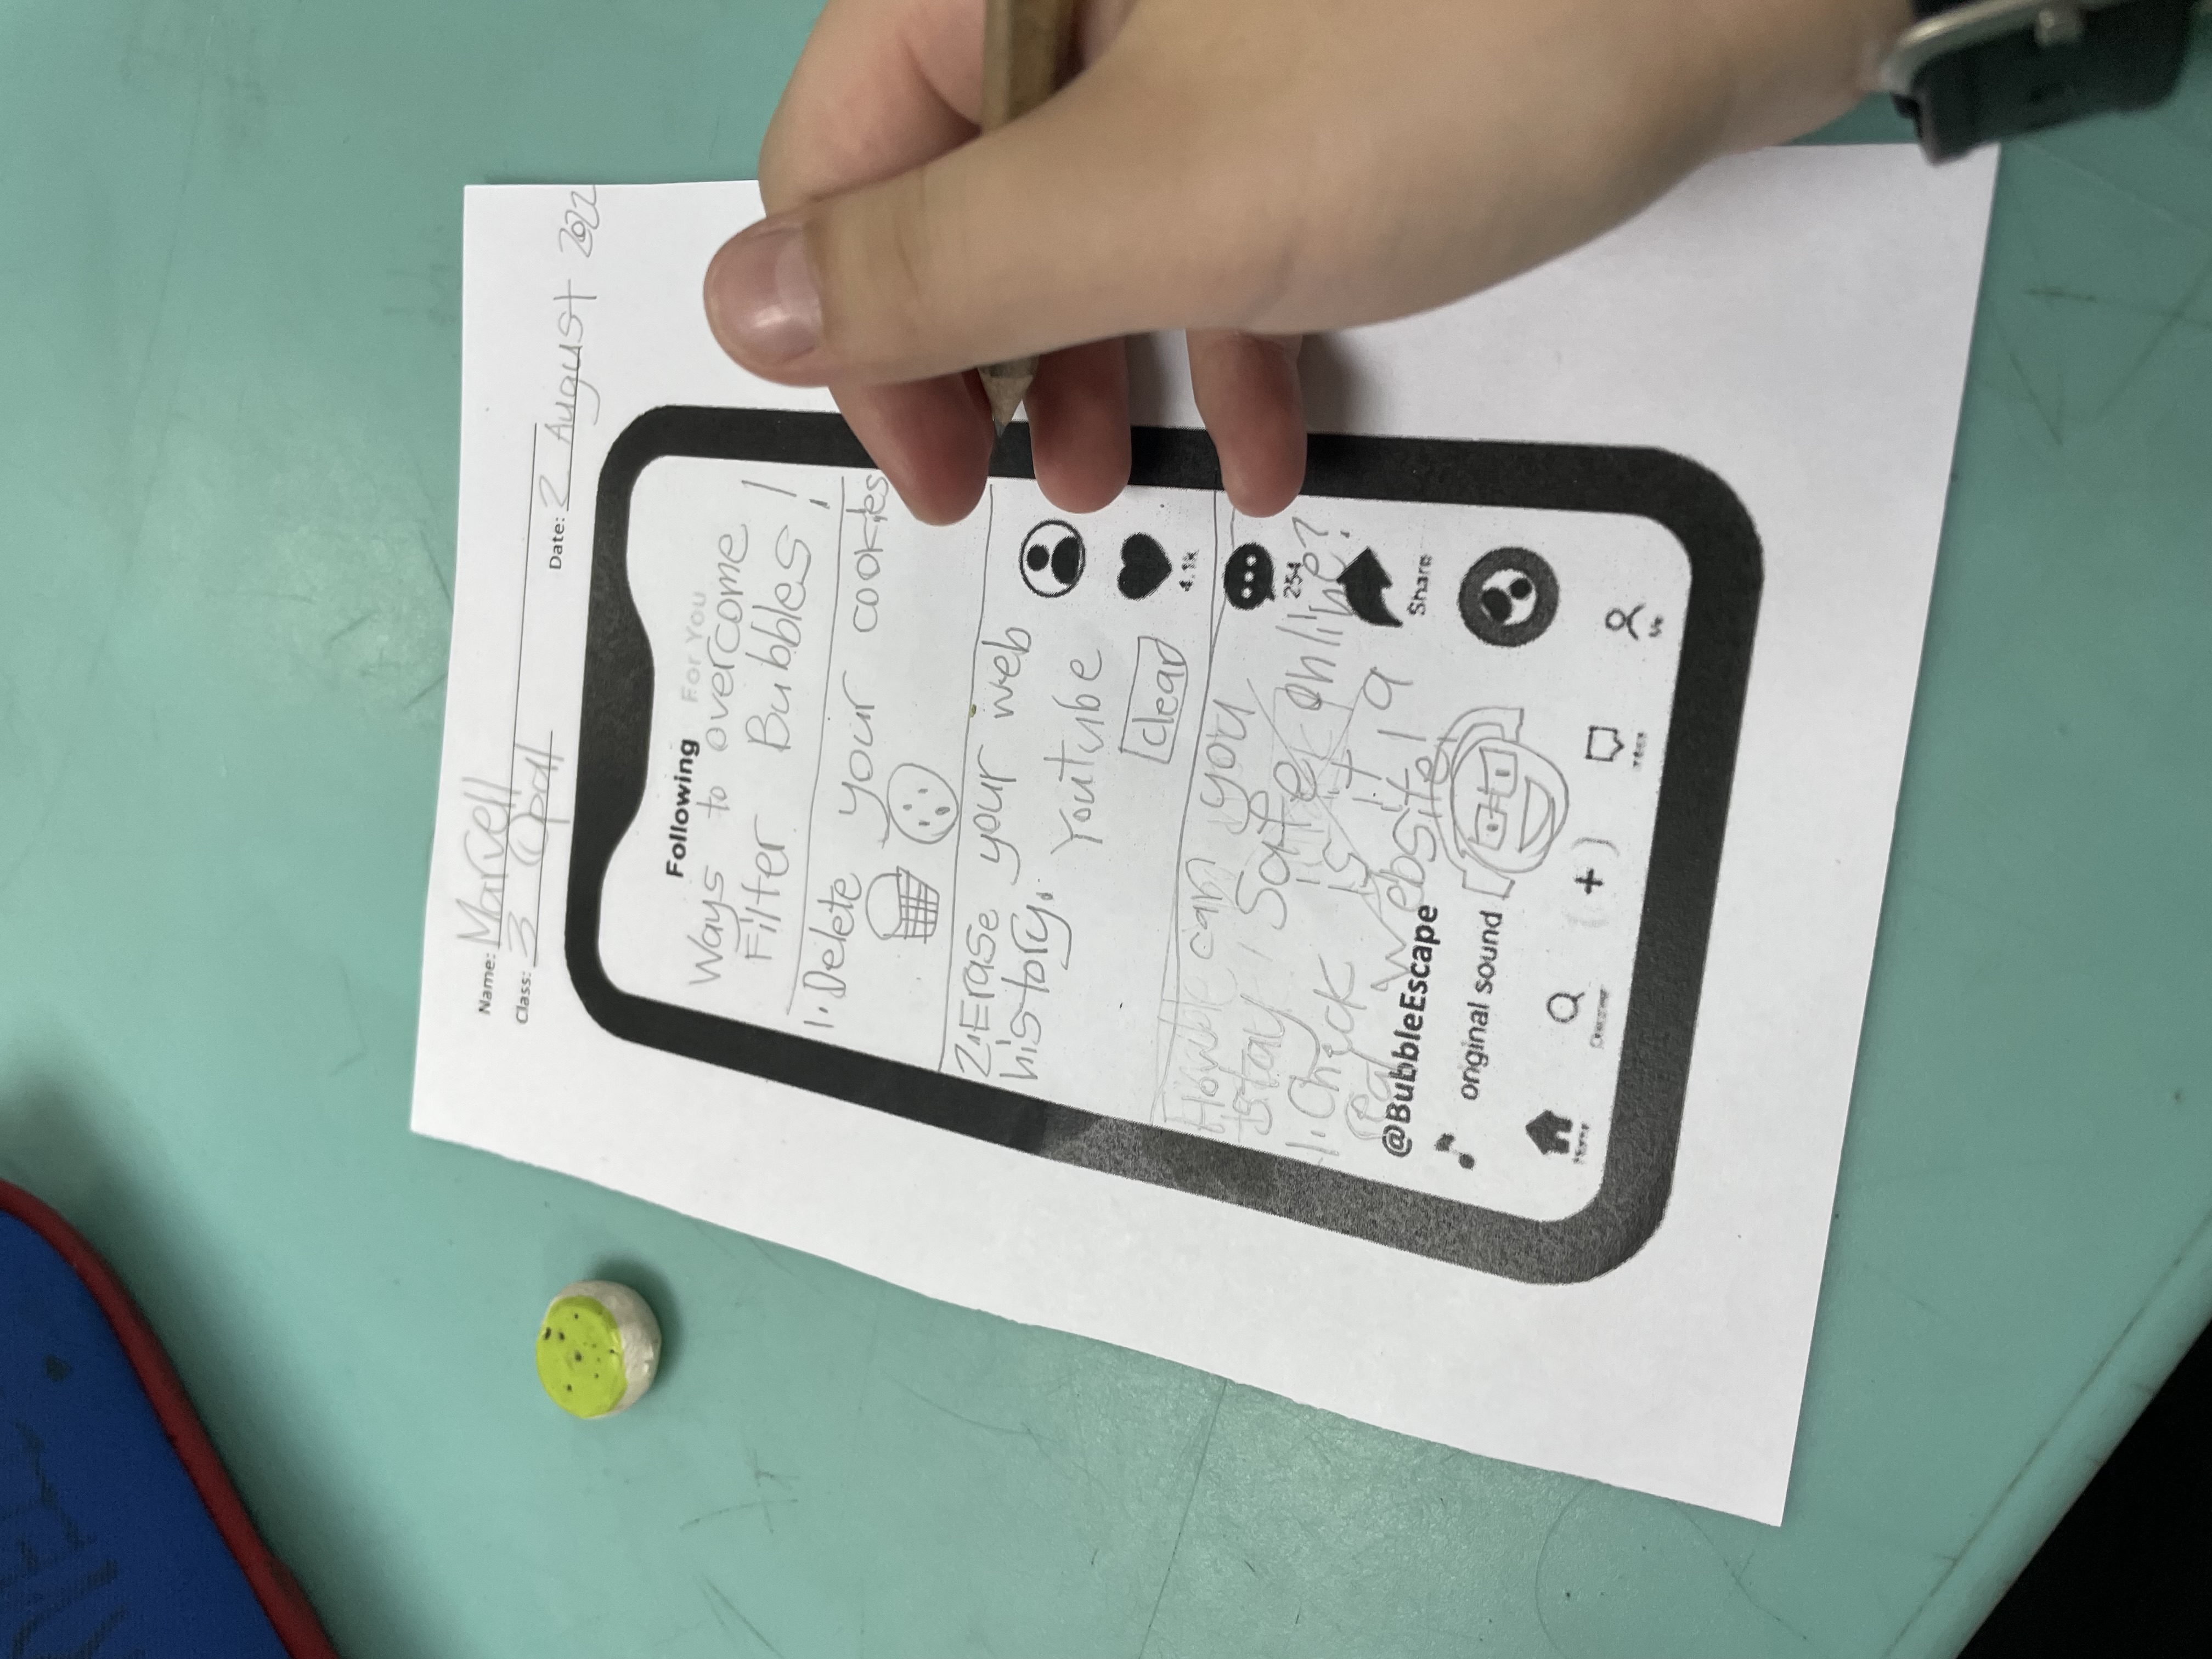 Name: Marvell
Class: 3 Opal
Date: 2 August 2022
Following For You
Ways to overcome
Filter Bubbles!
1. Delete your cookies
2. Erase your web
history.
Youtube
clear
4.1k
How can you
stay safe online?
254
1. Check is it a
real website!
Share
@BubbleEscape
original sound
Home
Discover
+
Me